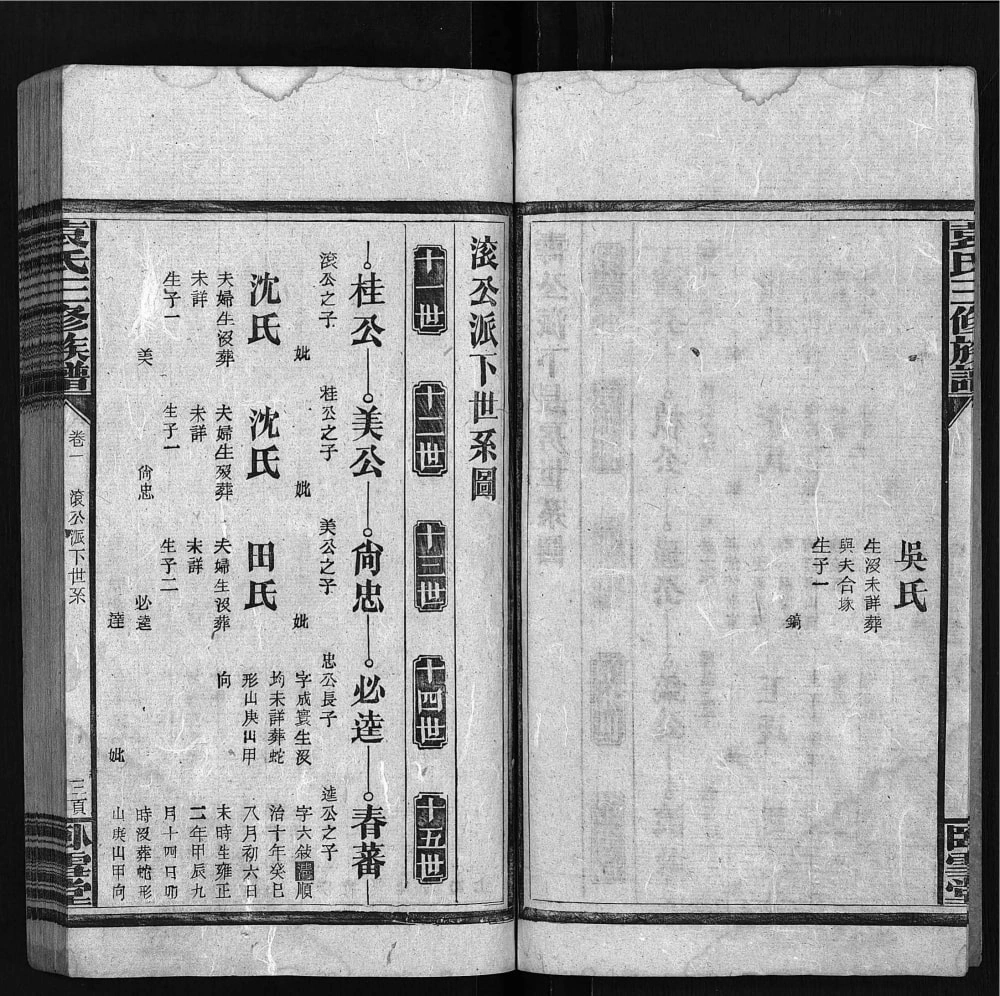 袁氏三修族譜
臥雲堂
吳氏
生歿未詳葬
與夫合塚
生子一
鏑
滚公派下世系圖
十一世
十二世
十三世
十四世
十五世
桂公
美公
尙忠
必達
春蕃
滚公之子
妣
沈氏
夫婦生歿葬
未詳
生子一
美
桂公之子
妣
沈氏
夫婦生歿葬
未詳
生子一
尙忠
美公之子
妣
田氏
夫婦生歿葬
未詳
生子二
必達
達
忠公長子
字成寰生歿
均未詳葬蛇
形山庚山甲
向
妣
達公之子
字六敍清順
治十年癸巳
八月初六日
未時生雍正
二年甲辰九
月十四日卯
時歿葬蛇形
山庚山甲向
袁氏三修族譜
卷一
滚公派下世系
三頁
臥雲堂